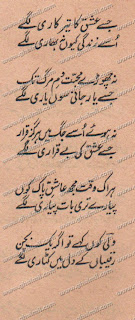 جسے عشق کا تیر کاری لگے
اُسے زندگی کیوں نہ بھاری لگے
نہ چھوڑے محبت دمِ مرگ تک
جسے یار جانی سوں یاری لگے
نہ ہووے اُسے جگ میں ہرگز قرار
جسے عشق کی بے قراری لگے
ہر اک وقت مجھ عاشق پاک کوں
پیارے تری بات پیاری لگے
ولی کوں کہے تو اگر یک بچن
رقیباں کے دل میں کٹاری لگے